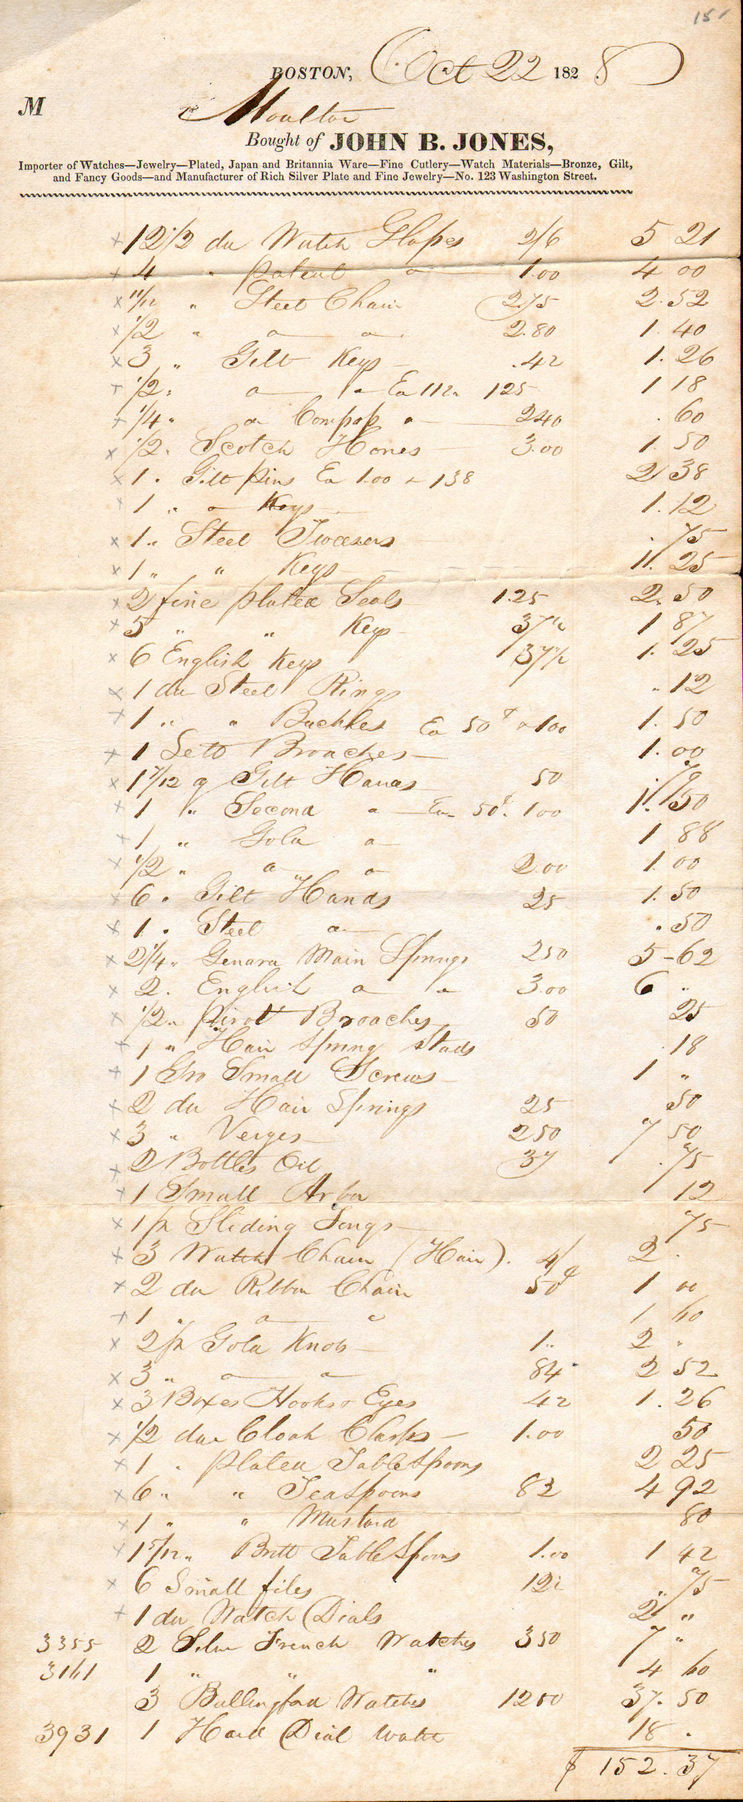 BOSTON, Oct 22 1828
M Moulton
Bought of JOHN B. JONES,
Importer of Watches—Jewelry—Plated, Japan and Britannia Ware—Fine Cutlery—Watch Materials—Bronze, Gilt,
and Fancy Goods—and Manufacturer of Rich Silver Plate and Fine Jewelry—No. 123 Washington Street.
x 12 1/2 do Watch Glasses 2/6 5 21
x 4 " Patent " 1.00 4 00
x 11/12 " Steel Chain 2.75 2.52
x 1/2 " " " 2.80 1.40
x 3 " Gilt Keys .42 1.26
x 1/2 " " " Ea 112 125 1 18
x 1/4 " " Compass " 240 .60
x 1/2 " Scotch Hones 3.00 1.50
x 1 " Gilt Pins Ea 1.00 & 138 2 38
x 1 " " Keys 1.12
x 1 " Steel Tweezers .75
x 1 " " Keys 1.25
x 2 fine plated Seals 125 2.50
x 5 " " Keys 37 1/2 1 87
x 6 English Keys 37 1/2 1.25
x 1 do Steel Rings .12
x 1 " " Buckles Ea 50 & 100 1.50
x 1 Sett Broaches 1.00
x 1 7/12 Gilt Hands 50 .79
x 1 " Second " Ea 50 & 100 1.50
x 1 " Gold " 1 88
x 1/2 " " " 2.00 1.00
x 6 " Gilt Hands 25 1.50
x 1 " Steel " .50
x 2 1/4 " Geneva Main Springs 250 5-62
x 2 " English " " 3.00 6 "
x 1/2 " Pivot Broaches 50 25
x 1 " Hair Spring Studs .18
x 1 Gro Small Screws 1 "
x 2 do Hair Springs 25 50
x 3 " Verges 250 7 50
x 2 Bottles Oil 37 .75
x 1 Small Arbor 12
x 1 p Sliding Tongs 75
x 3 Watch Chain (Hair). 4/ 2 .
x 2 do Ribbon Chain 50 1 00
x 1 " " " 1 60
x 2 p Gold Knobs 1.. 2 "
x 3 " " " 84 2 52
x 3 Boxes Hooks & Eyes 42 1.26
x 1/2 do Cloak Clasps 1.00 50
x 1 " Plated Table Spoons 2 25
x 6 " " Teaspoons 82 4 92
x 1 " " Mustard 80
x 1 5/12 " Britt Table Spoons 1.00 1 42
x 6 Small files 12 1/2 " 75
x 1 do Watch Dials 2 "
3355 2 Silver French Watches 350 7 "
3161 1 " " " 4 60
3 Bullingford Watches 1200 37.50
3931 1 Hard Dial Watch 18 .
$ 152.37